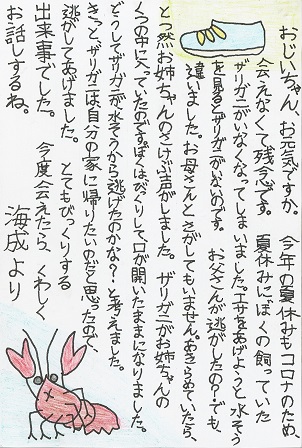 おじいちゃん、お元気ですか。今年の夏休みもコロナのため、
会えなくて残念です。 夏休みにぼくの飼っていた
ザリガニがいなくなってしまいました。エサをあげようと水そう
を見るとザリガニがいないのです。 お父さんが逃がしたの?でも
違いました。お母さんとさがしてもいません。あきらめていたら、
とつ然お姉ちゃんのさけぶ声がしました。 ザリガニがお姉ちゃんの
くつの中に入っていたのです。ぼくはびっくりして口が開いたままになりました。
どうしてザリガニが水そうから逃げたのかな?と考えました。
きっとザリガニは自分の家に帰りたいのだと思ったので、
逃がしてあげました。 とてもびっくりする
出来事でした。 今度会えたら、くわしく
お話しするね。 海成より